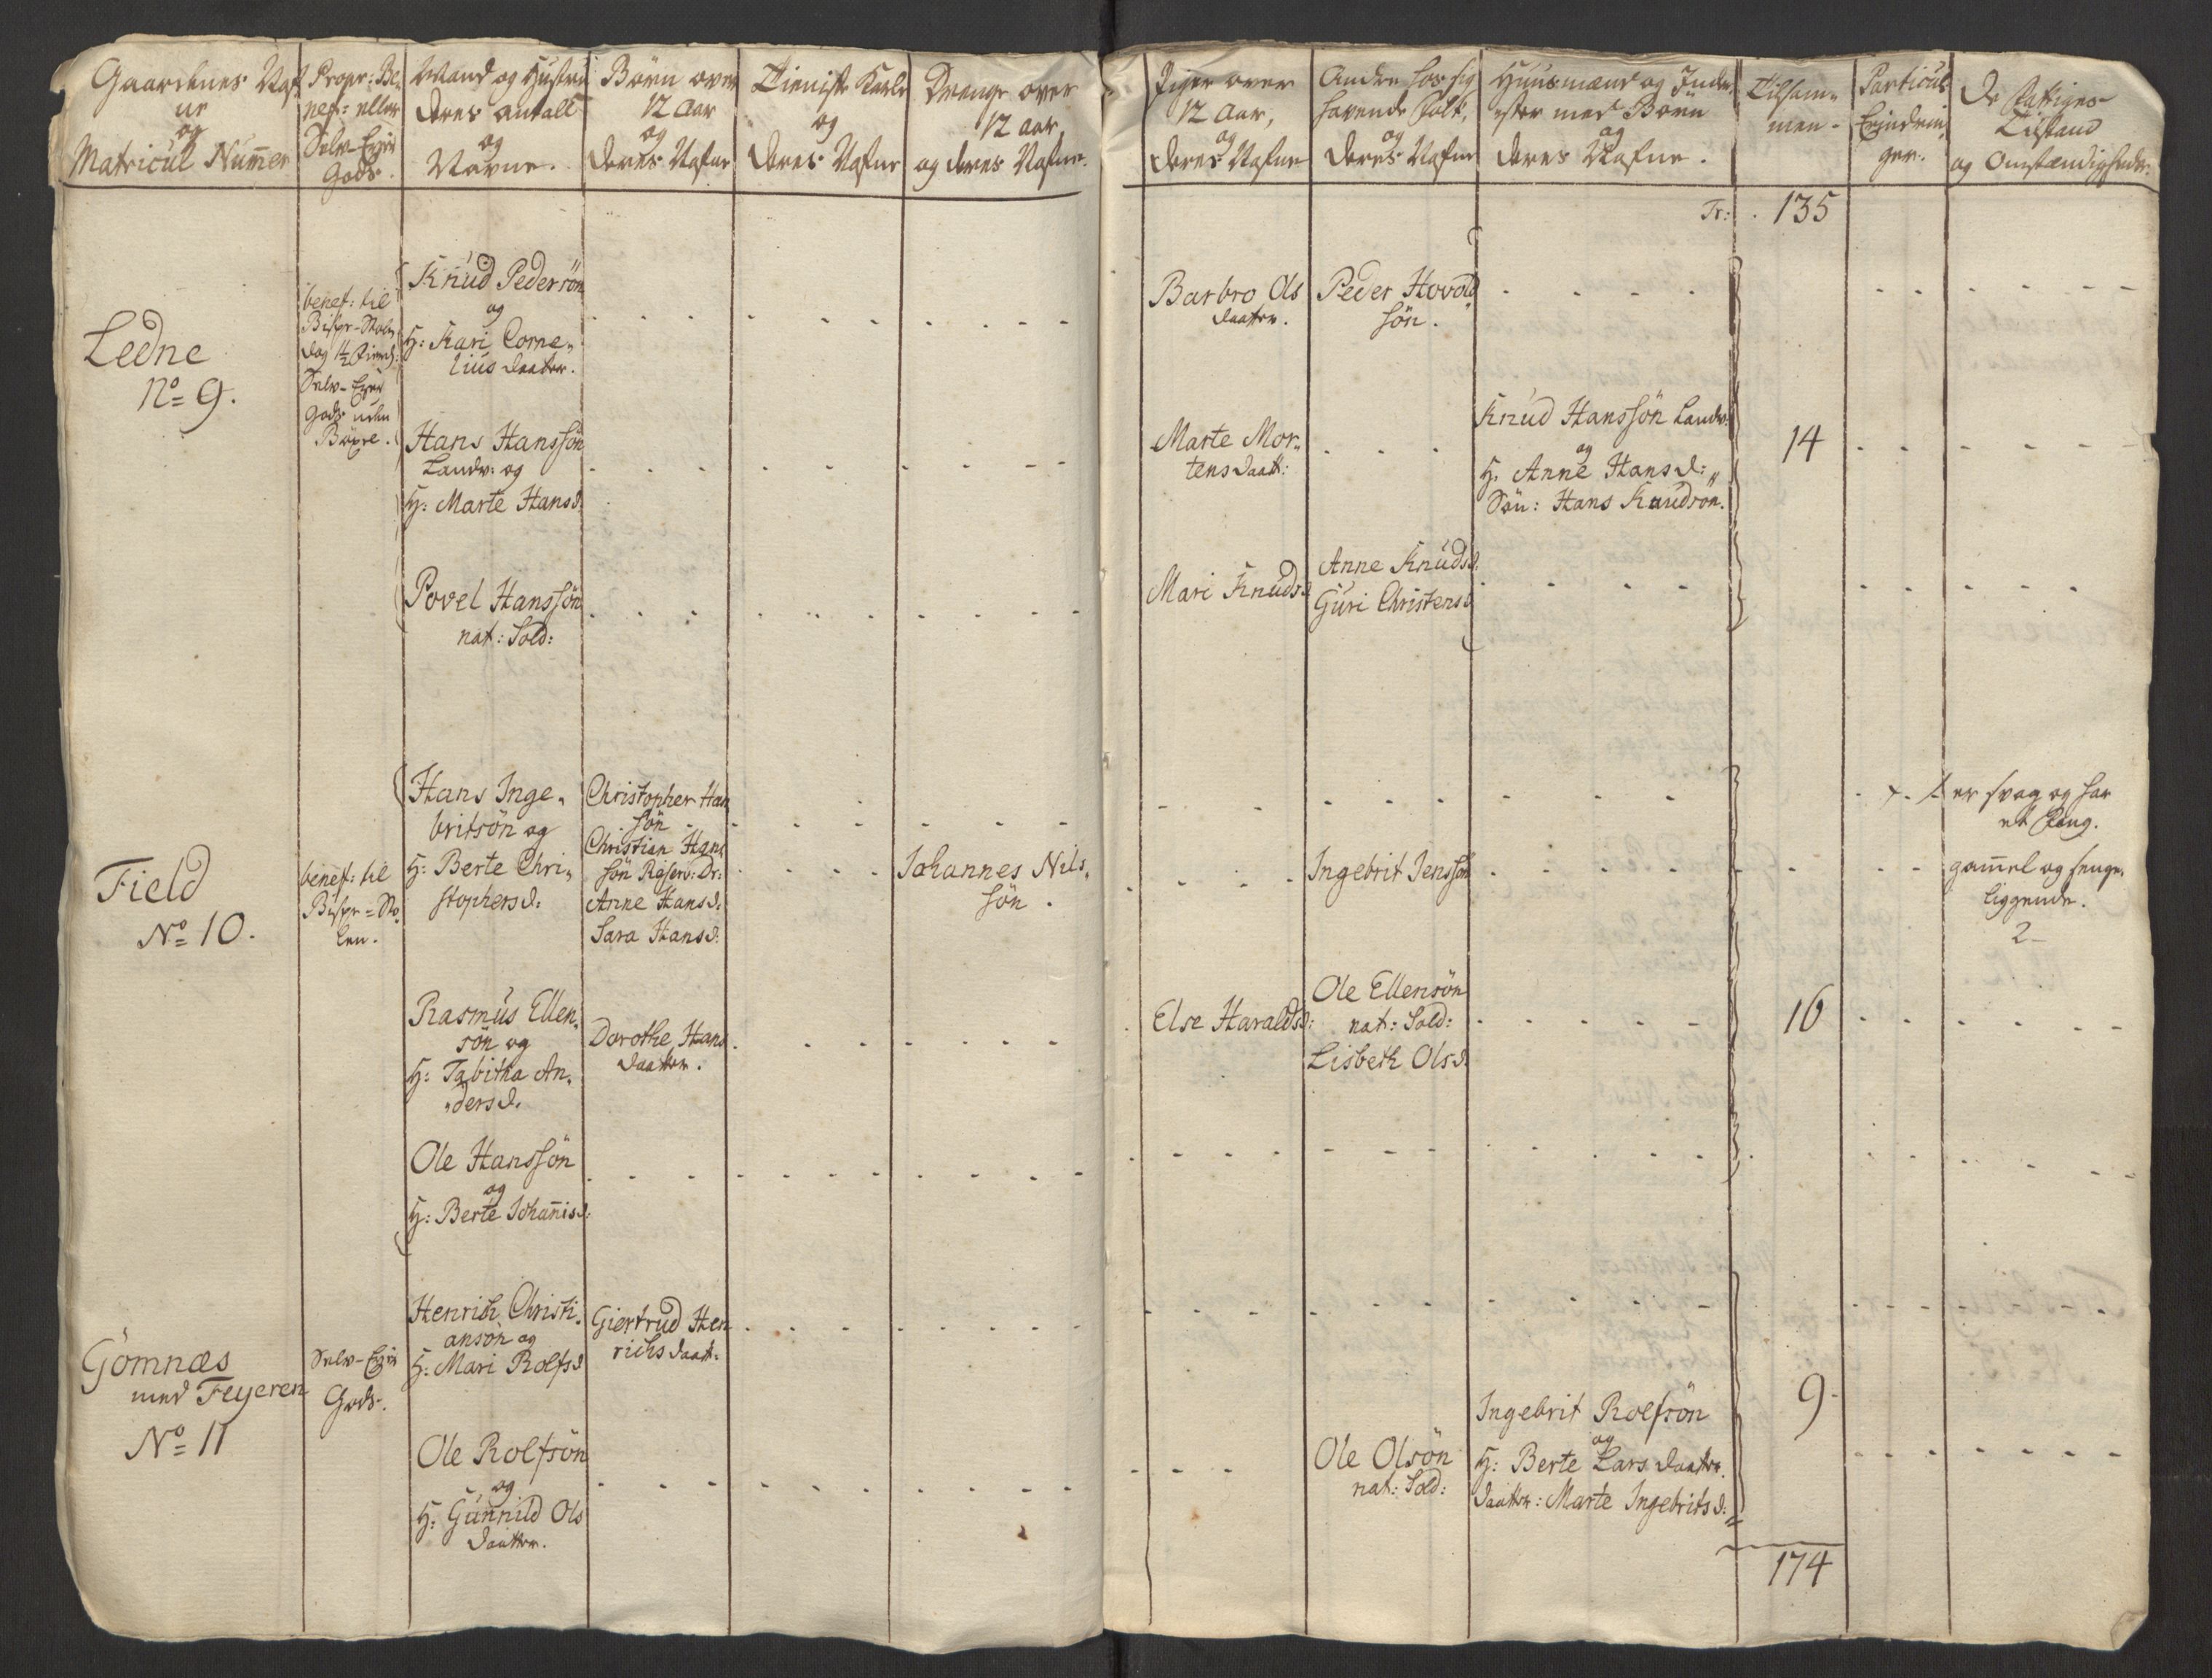 Gaardenes Naf
ne
og
Matricul Num̄er
Propr: Be-
nef: eller
Selv-Eyer
Gods.
Mand og Hustru
deres antall
og
Navne.
Börn over
12 Aar
og
deres Nafne
Tieniste Karle
og
deres Nafne
Drenge over
12 aar
og deres Nafne.
Piger over
12 Aar,
og
deres Nafne
Andre hos sig
havende Folk,
og
deres Nafne
Huusmænd og Inder-
ster med Börn
og
deres Nafne.
Tilsam-
men-
Particul
Erindrin
ger.
De Fattiges
Tilstand
og Omstændigheder.
Tr: 135
Ledne
No 9.
benef: til
Bispe-Stolen
dog 1½
Selv-Eyer
Gods uden
Böxel.
Knud Pedersön
og
H: Kari Corne-
lius daatter.
Barbro Ols
daatter.
Peder Hovold
sön.
Hans Hanssön
Landv: og
H: Marte Hansd.
Marte Mor-
tens daatt:
Knud Hanssön Landv:
og
H. Anne Hansd:
Sön: Hans Knudsön.
14
Povel Hanssön
nat: Sold:
Mari Knudsd
Anne Knudsd.
Guri Christensd
Field
No 10.
benef: til
Bispe-Sto
len.
Hans Inge-
britsön og
H: Berte Chri-
stophersd:
Christopher Han
sön
Christian Hans
sön Reserv: Dr:
Anne Hansd:
Sara Hansd:
Johannes Nils-
sön.
Ingebrit Jenssön
er svag og har
et Pleng.
gam̄el og senge-
liggende.
2-
Rasmus Ellen-
sön og
H: Tabitha An-
dersd.
Dorothe Hans
daatter.
Else Haraldsd:
Ole Ellensön
nat: Sold:
Lisbeth Olsd.
16
Ole Hanssön
og
H: Berte Johan̄isd:
Gomnæs
med Feyeren
No 11
Selv-Eyer
Gods.
Henrich Christi-
ansön og
H: Mari Rolfsd
Giertrud Hen
richs daatt:
9-
Ole Rolfsön
og
H: Gunnild Ols
daatter.
Ole Olsön
nat: Sold:
Ingebrit Rolfsön
og
H: Berte Lars daatter.
daatter: Marte Ingebritsd:
174